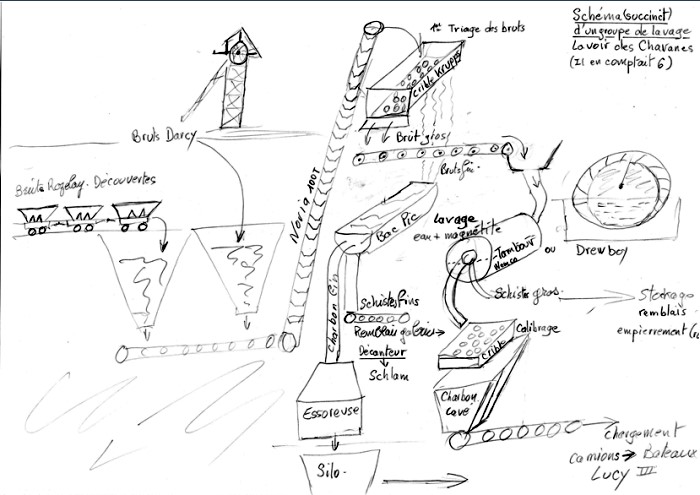 Schéma (succinct)
d'un groupe de lavage
Lavoir des Chavanes
(Il en comptait 6)
1er Triage des bruts
Crible Krupps
Bruts Darcy
Brut gros
Bruts fin.
Bruts Rozelay. Découvertes
Noria 100T
Bac Pic
lavage
eau + magnétite
Tambour
Nemco
ou
Drewboy
Charbon fin
Schistes fins
Remblais galeries
Décanteur
Schlam
Schistes gros
Stockage
remblais
empierrement
Calibrage
Crible
Essoreuse
Charbon
cave
Silo.
chargement
camions → Bateaux
Lucy III